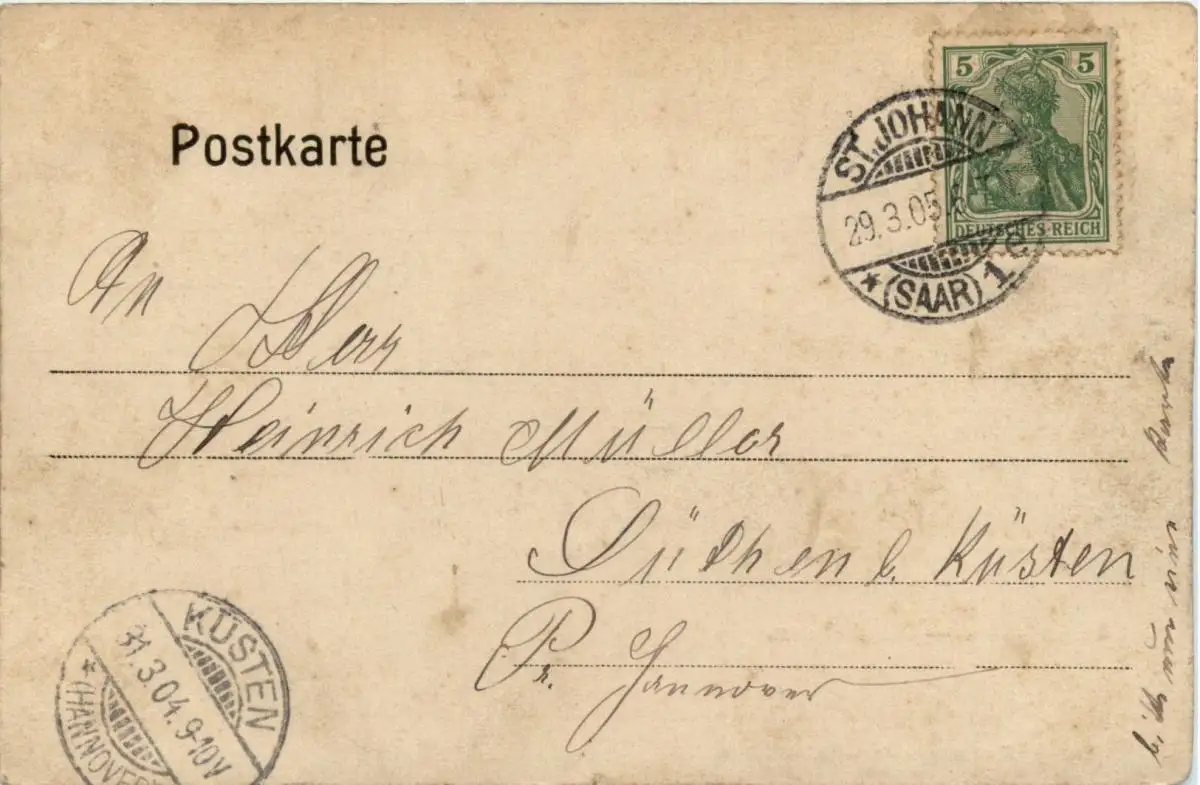 Postkarte
5 5
DEUTSCHES REICH
ST. JOHANN
29.3.05.
* (SAAR) 1e
An
Herr
Heinrich Müller
Lüthen b. Küsten
Pr. Hannover
KÜSTEN
31.3.04.9-10V
* (HANNOVER)